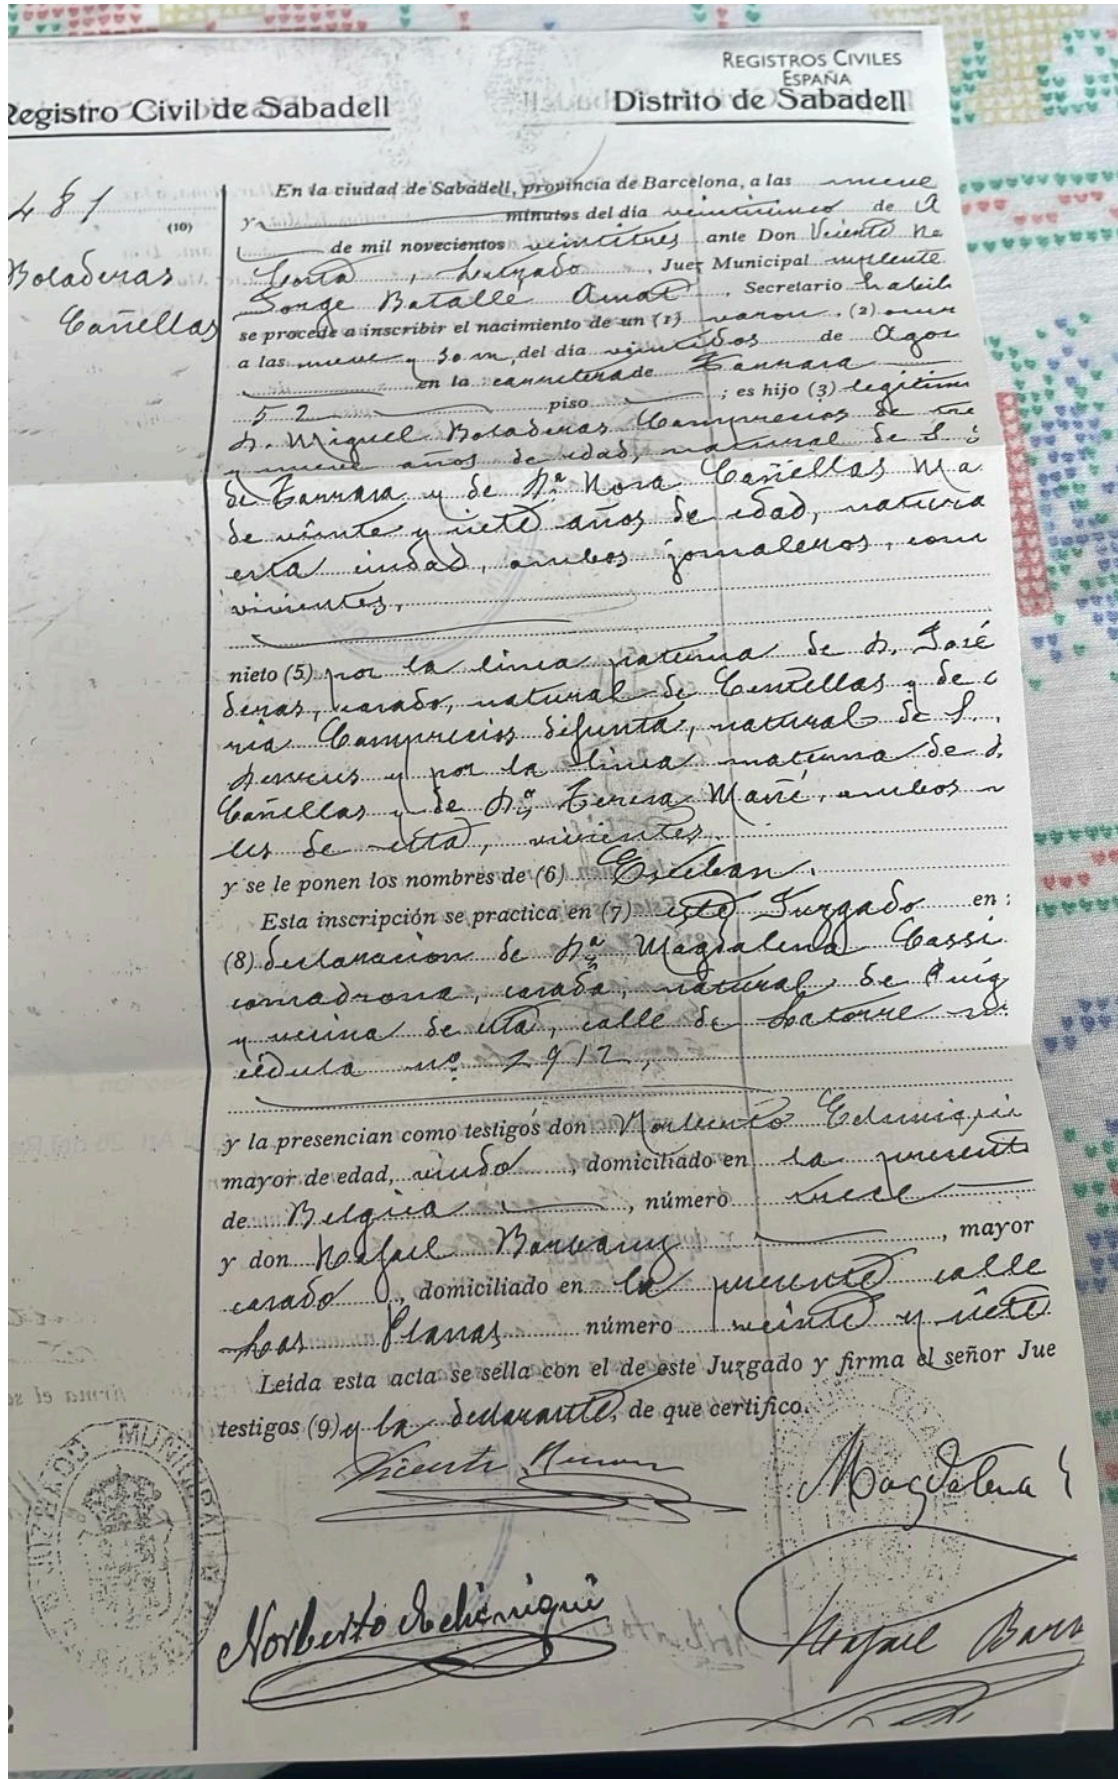 REGISTROS CIVILES
ESPAÑA
Registro Civil de Sabadell
Distrito de Sabadell
481
(10)
Boladeras
Cañellas
En la ciudad de Sabadell, provincia de Barcelona, a las nueve
y minutos del día veinticinco de A
de mil novecientos veintitres ante Don Vicente Re
Costa, Letrado, Juez Municipal suplente
Jorge Batallé Amat, Secretario habili
se procede a inscribir el nacimiento de un (1) varon, (2) ocur
a las nueve y 30 m, del día veintidos de Agos
en la carretera de Tarrasa
52 piso ; es hijo (3) legitimo
D. Miguel Boladeras Comprecios de tre
y nueve años de edad, natural de S.
de Tarrasa y de Dª Rosa Cañellas Ma
de veinte y siete años de edad, natura
esta ciudad, ambos jornaleros, con
vivientes.
nieto (5) por la linea paterna de D. José
deras, casado, natural de Centellas y de
ria Comprecios difunta, natural de S.
y por la linea materna de D.
Cañellas y de Dª Teresa Mañé, ambos n
les de esta, vivientes.
y se le ponen los nombres de (6) Esteban.
Esta inscripción se practica en (7) este Juzgado en
(8) declaracion de Dª Magdalena Cassi
comadrona, casada, natural de Puig
y vecina de esta, calle de Latorre
cédula nº 2912,
y la presencian como testigos don Norberto Echeniqui
mayor de edad, viudo, domiciliado en la presente
de Belgica, número trece
y don Rafael Barbany, mayor
casado, domiciliado en la presente calle
Las Planas número veinte y siete
Leída esta acta se sella con el de este Juzgado y firma el señor Jue
testigos (9) y la declarante, de que certifico.
Vicente
Magdalena
Norberto Echeniqui
Rafael Barb
JUZGADO MUNICIPAL